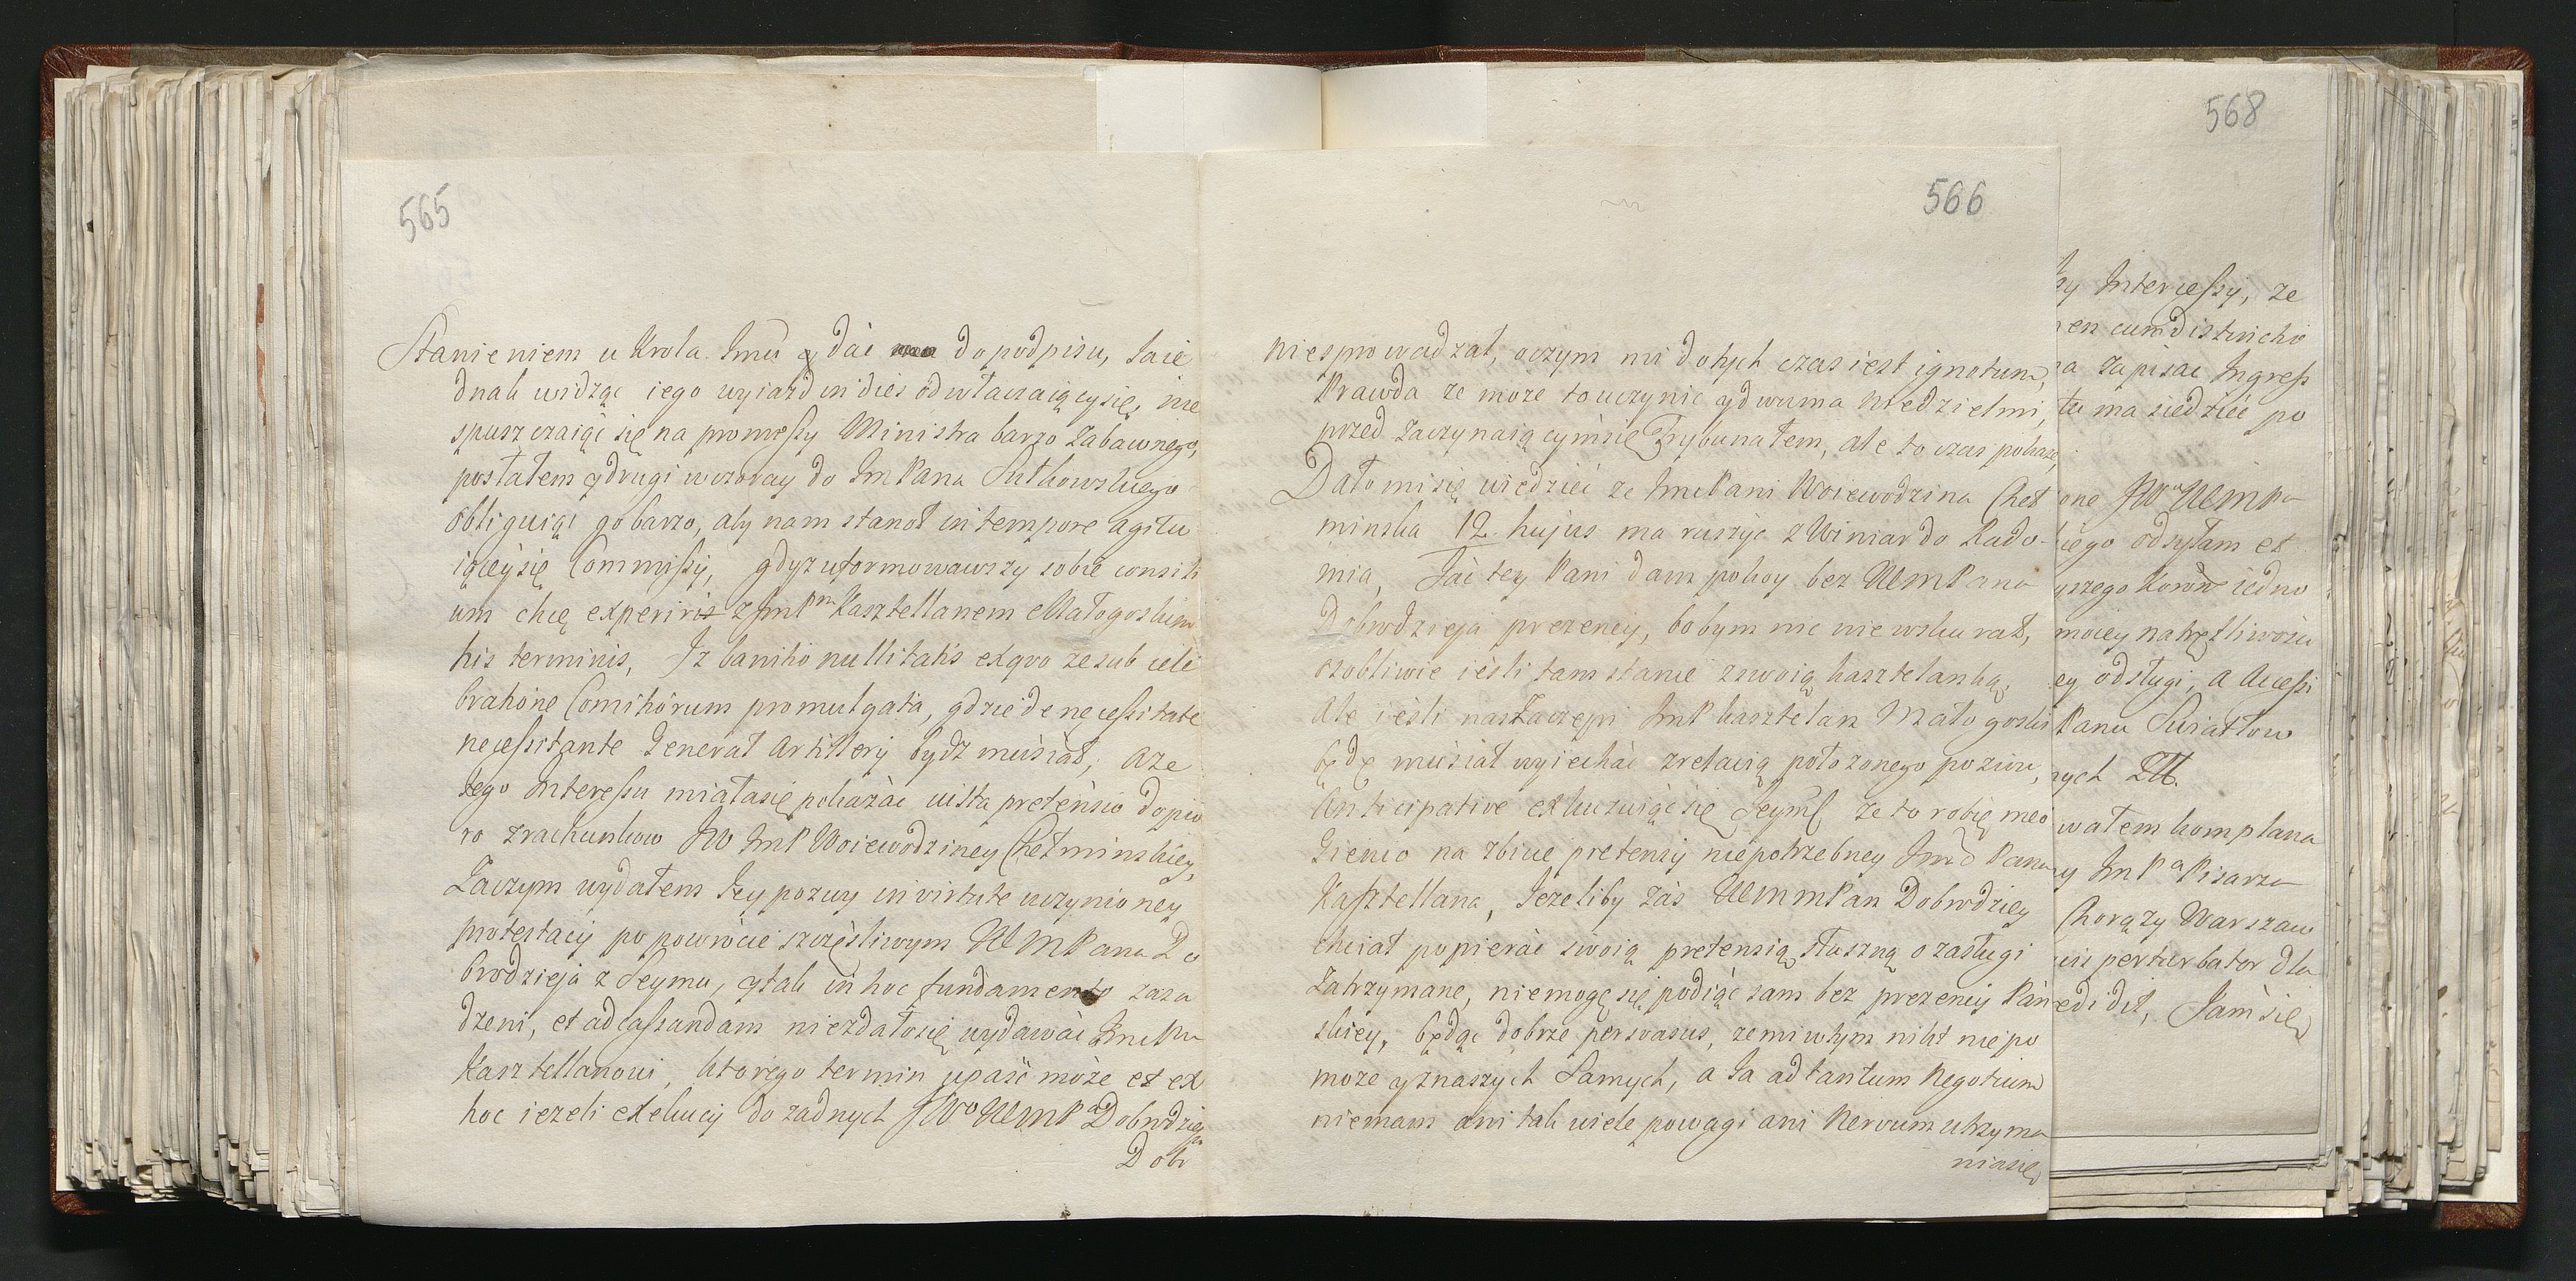 565
Stanieniem u Krola Jmci y dać do podpisu, Jaie
dnak widząc iego wyiazd in dies odwłaczaiący się, nie
spuszczaiąc się na promessy Ministra barzo zabawnego,
posłałem y drugi wczoray do Jm Pana Sułkowskiego
obliguiąc go barzo, aby nam stanoł in tempore agitu
iąćey się Commissÿ, gdyz uformowawszy sobie consili
um chcę experiris z Jm Pm Kasztellanem Małogoskim
his terminis, Iz banitio nullitatis ex quo ze sub cele
bratione Comitiorum promulgata, gdzie de necessitate
necessitante General Artillerÿ bydz musiał, a ze
tego Interessu miałasię pokazać
ro zrachunkow JW JmP Woiewodziney Chełminskiey,
Zaczym wydałem Jey pozwy in virtute uczynioney
protestacÿ po powrocie szczęsliwym WMPana Do
brodzieja z Seymu, y tak in hoc fundamento zasa
dzeni, et ad cassandam niezdałosię wydawać JmcPu
Kasztellanowi, ktorego termin upaść może et ex
hoc iezeli exekucÿ do zadnych JWo WMPa Dobrodzieja
Dobr
566
nie sprowadzał, oczym mi do tych czas iest ignotum,
Prawda ze moze to uczynic y dwuma Niedzielmi,
przed zaczynaiącymsię Trybunałem, ale to czas pokaze,
Dało mi się wiedzieć ze JmcPani Woiewodzina Cheł
minska 12. hujus ma ruszyc z Winiar do Rado-
mia, Jać tey Pani dam pokoy bez WMPana
Dobrodzieja prezencÿ, bobym nic nie wskurał,
osobliwie ieśli tam stanie z swoią kasztelanką,
Ale ieśli nas zaczepi JmP kasztelan Małogoski
będę musiał wyiechać z relacią położonego pozwu,
Anticipative exkuzuiąc się ze to robię meo
Genio na zbicie pretensÿ niepotrzebney Pana
Kasztellana, Jezeliby zás WMmPan Dobrodziey
chciał popieráć swoią pretensią słuszną o zasługi
Zatrzymane, niemogę się podiąć sam bez prezencÿ Pań
skiey, będąc dobrze persvasus, ze mi w tym nikt nie po
moze y z naszych Samych, a Ja ad tantum Negotium
niemam ani tak wiele powagi ani Nervum utrzyma
niasię
568
Interessÿ, ze
en cum distincti
a zapisac Ingress
tu ma siedzieć po
one JWo WMPa
iego odsyłam et
Koron iedno
moiey natrętliwosci
ey odsługi, a Accessi
Panu Swiatłow
ych
wałem komplana
y JmPa Pisarza
Chorązy Warszaw
perturbator dla
edidit, Jam się